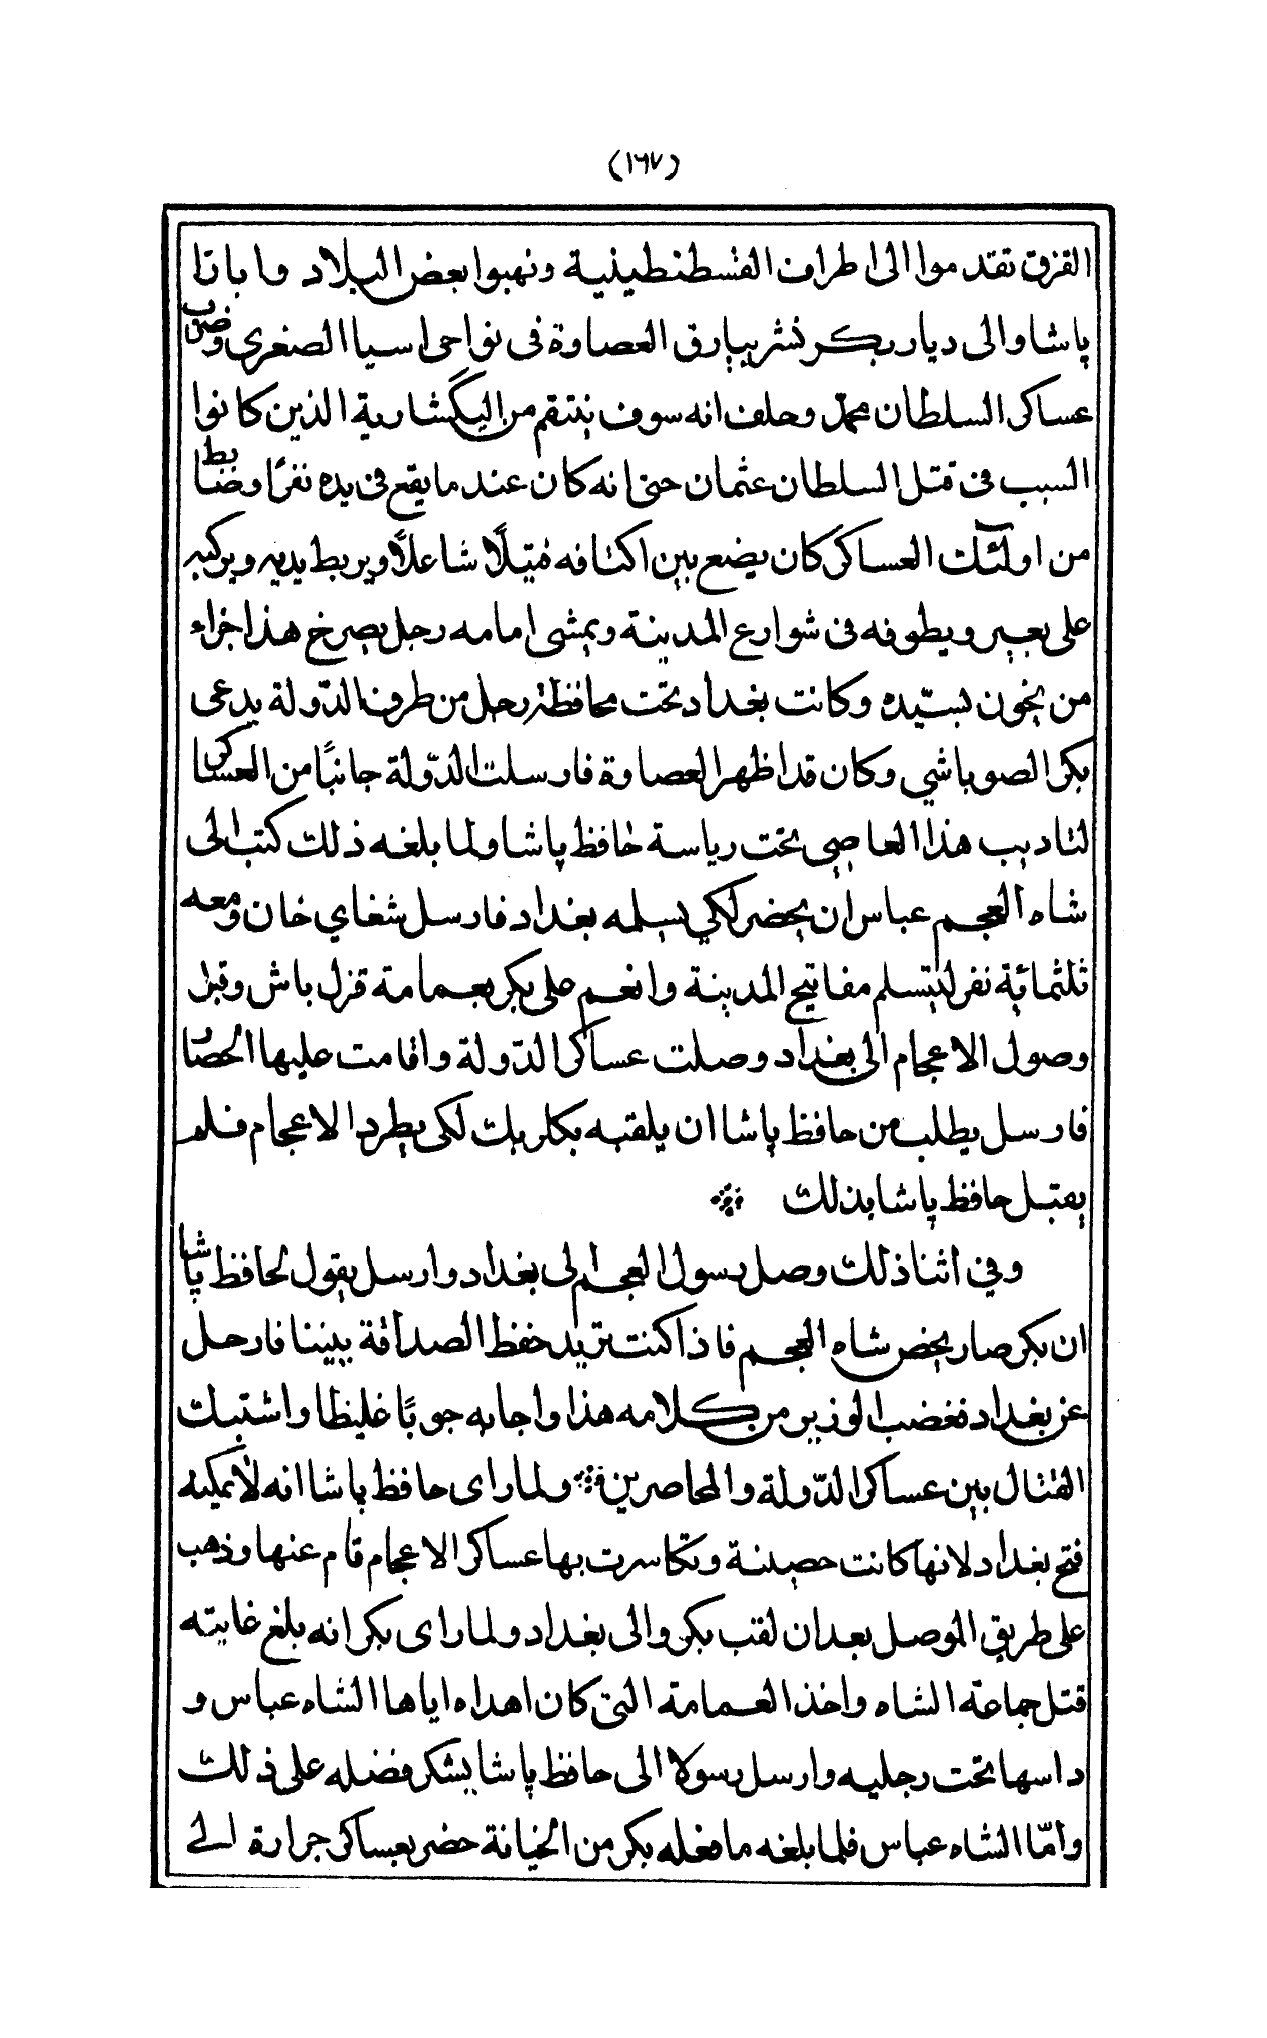 (١٦٧)
القزق تقدموا الى اطراف القسطنطينية ونهبوا بعض البلاد واباتا
پاشا والى ديار بكر نشر بيارق العصاوة فى نواحى اسيا الصغرى وضرب
عساكر السلطان محمد وحلف انه سوف ينتقم من اليكشارية الذين كانوا
السبب فى قتل السلطان عثمان حتى انه كان عند ما يقع فى يده نفرًا وضابطا
من اولئك العساكر كان يضع بين اكتافه فتيلًا شاعلًا ويربط يديه ويركبه
على بعير ويطوفه فى شوارع المدينة ويمشى امامه رجل يصرخ هذا جزاء
من يخون بسيّده وكانت بغداد تحت محافظة رجل من طرف الدّولة يدعى
بكر الصوباشي وكان قد اظهر العصاوة فارسلت الدّولة جانبًا من العساكر
لتاديب هذا العاصى تحت رياسة حافظ پاشا ولما بلغه ذلك كتب الى
شاه العجم عباس ان يحضر لكي يسلمه بغداد فارسل شغاي خان ومعه
ثلثماية نفر لتسلم مفاتيح المدينة وانعم على بكر بعمامة قزل باش وقبل
وصول الاعجام الى بغداد وصلت عساكر الدّولة واقامت عليها الحصار
فارسل يطلب من حافظ پاشا ان يلقبه بكلربك لكى يطرد الاعجام فلم
يقبل حافظ پاشا بذلك
وفي اثنا ذلك وصل رسول العجم الى بغداد وارسل يقول لحافظ پاشا
ان بكر صار يخص شاه العجم فاذا كنت تريد حفظ الصداقة بيننا فارحل
عن بغداد فغضب الوزير من كلامه هذا واجابه جوبًا غليظا واشتبك
القتال بين عساكر الدّولة والمحاصرين ولما راى حافظ پاشا انه لا يمكنه
فتح بغداد لانها كانت حصينة وتكاسرت بها عساكر الاعجام قام عنها وذهب
على طريق الموصل بعد ان لقب بكر والى بغداد ولما راى بكر انه بلغ غايته
قتل جماعة الشاه واخذ العمامة التى كان اهداه اياها الشاه عباس و
داسها تحت رجليه وارسل رسولا الى حافظ پاشا يشكر فضله على ذلك
وامّا الشاه عباس فلما بلغه ما فعله بكر من الخيانة حضر بعساكر جرارة الى